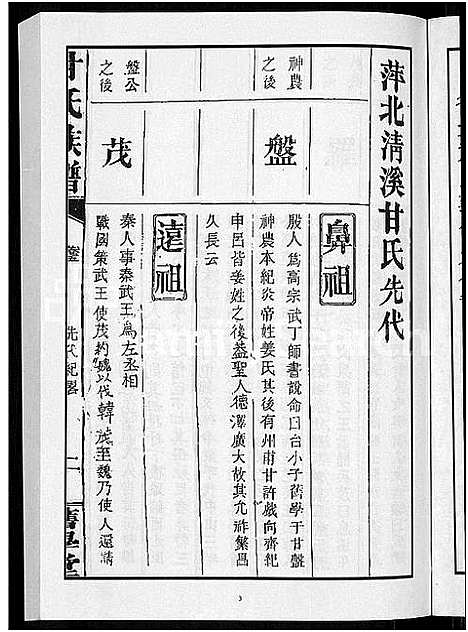 萍北清溪甘氏先代
神農
之後
盤
鼻祖
殷人爲高宗武丁師書說命曰台小子舊學于甘盤
神農本紀炎帝姓姜氏其後有州甫甘許戲向齊紀
申呂皆姜姓之後益聖人德澤廣大故其允祚繁昌
久長云
盤公
之後
茂
遠祖
秦人事秦武王爲左丞相
戰國策武王使茂約魏以伐韓茂至魏乃使人還請
甘氏族譜
先代紀畧
二
舊學堂
3